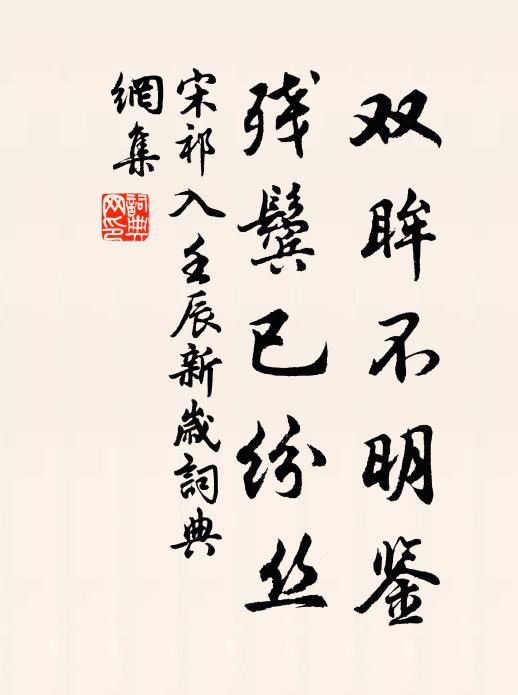 双眸不明鉴
残鬓已纷丝
宋祁入壬辰新歲詞典
網集
詞典
网印